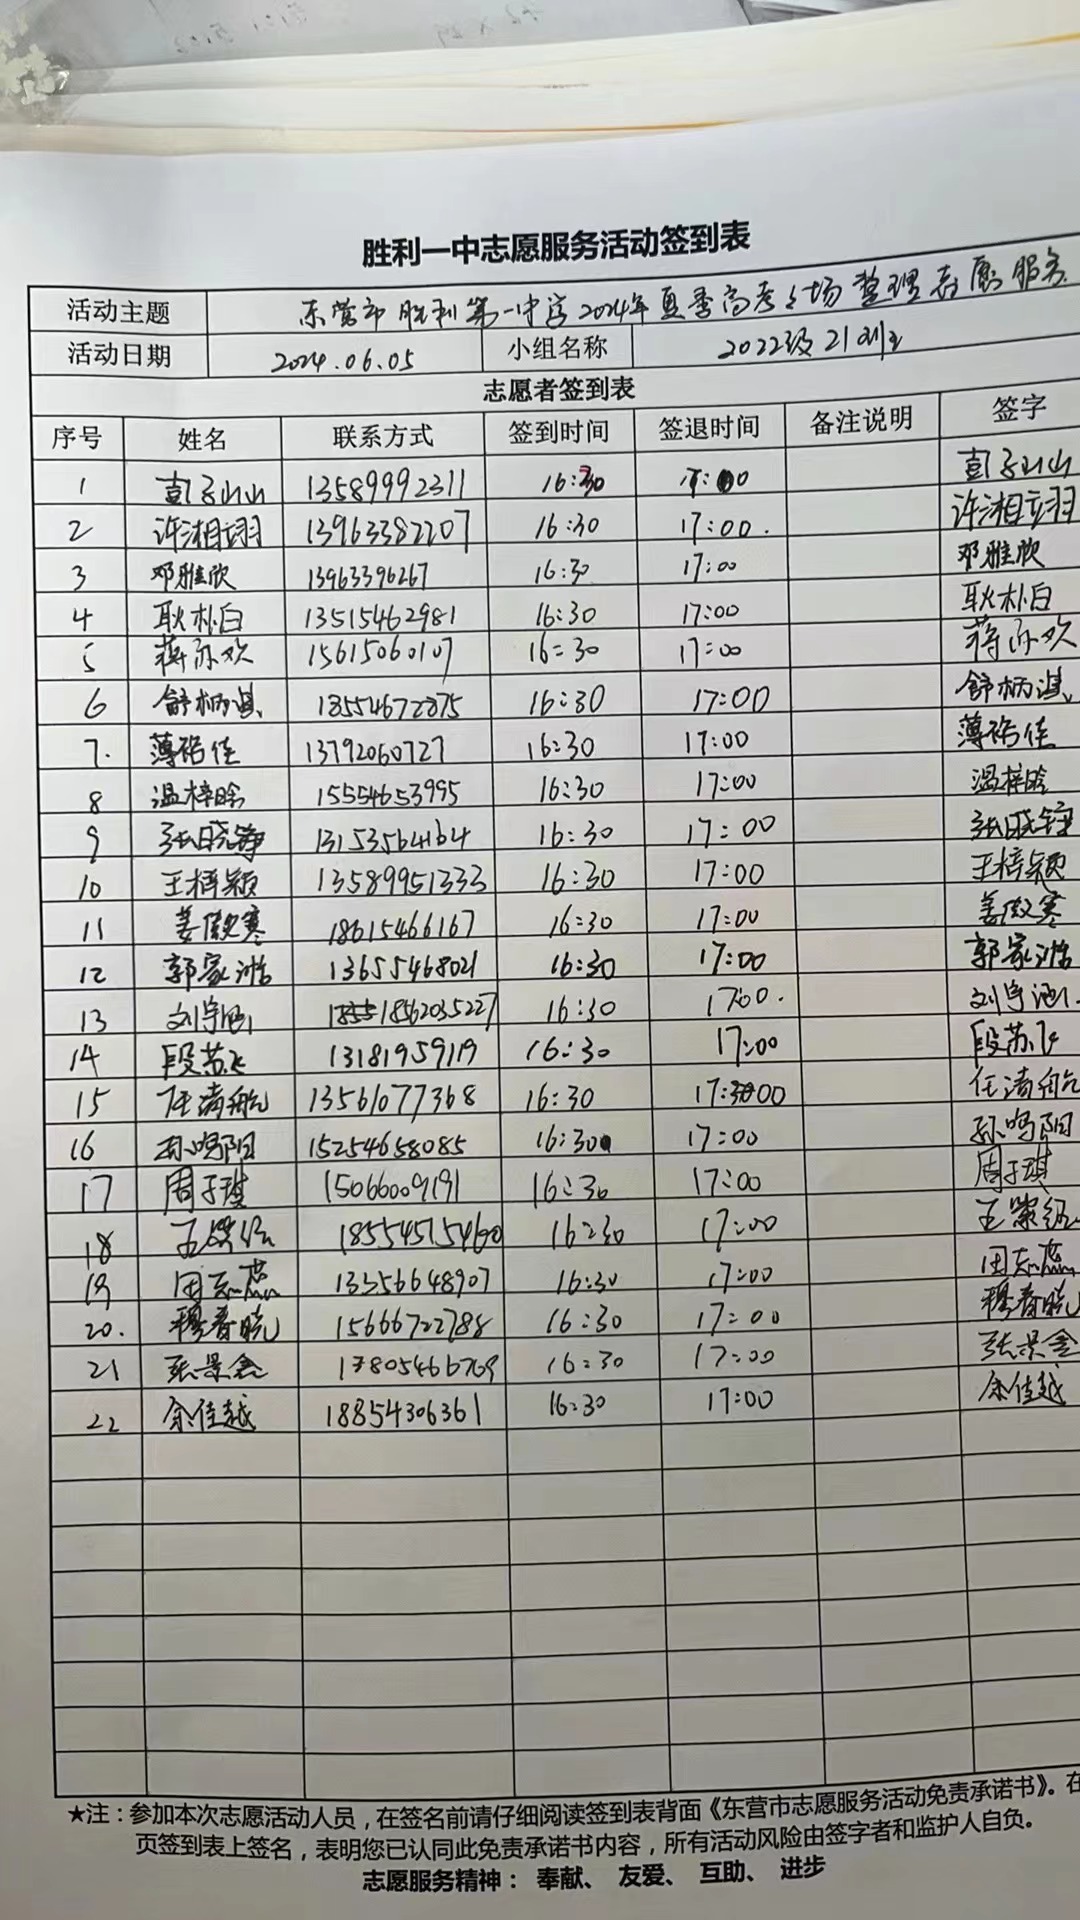 胜利一中志愿服务活动签到表
活动主题 东营市胜利第一中学2024年夏季高考考场整理志愿服务
活动日期 2024.06.05 小组名称 2022级21班
志愿者签到表
序号 姓名 联系方式 签到时间 签退时间 备注说明 签字
1 彭子山山 13589992311 16:30 17:00 彭子山山
2 许湘翊 13963382207 16:30 17:00. 许湘翊
3 邓雅欣 13963396267 16:30 17:00 邓雅欣
4 耿朴白 13515462981 16:30 17:00 耿朴白
5 蒋亦欢 15615060107 16:30 17:00 蒋亦欢
6 舒柄淇 18554672875 16:30 17:00 舒柄淇
7. 薄裕佳 13792060727 16:30 17:00 薄裕佳
8 温梓晗 15554653995 16:30 17:00 温梓晗
9 张晓铮 13153564164 16:30 17:00 张晓铮
10 王梓颖 13589951333 16:30 17:00 王梓颖
11 姜傲寒 18615466167 16:30 17:00 姜傲寒
12 郭家浩 13655468021 16:30 17:00 郭家浩
13 刘宇涵 18562035227 16:30 17:00. 刘宇涵
14 段苏飞 13181959119 16:30 17:00 段苏飞
15 任清航 13561077368 16:30 17:00 任清航
16 孙鸣阳 15254658085 16:30 17:00 孙鸣阳
17 周子琪 15066009191 16:30 17:00 周子琪
18 王 18554515460 16:30 17:00 王
19 田志燕 13356648907 16:30 17:00 田志燕
20. 穆春晓 15666722788 16:30 17:00 穆春晓
21 张景鑫 17805466769 16:30 17:00 张景鑫
22 余佳越 18854306361 16:30 17:00 余佳越
★注：参加本次志愿活动人员，在签名前请仔细阅读签到表背面《东营市志愿服务活动免责承诺书》。在
页签到表上签名，表明您已认同此免责承诺书内容，所有活动风险由签字者和监护人自负。
志愿服务精神： 奉献、 友爱、 互助、 进步